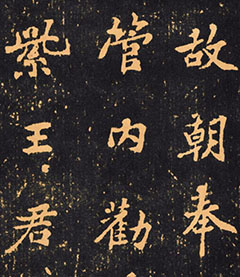 故朝奉
管内勸
紫王君